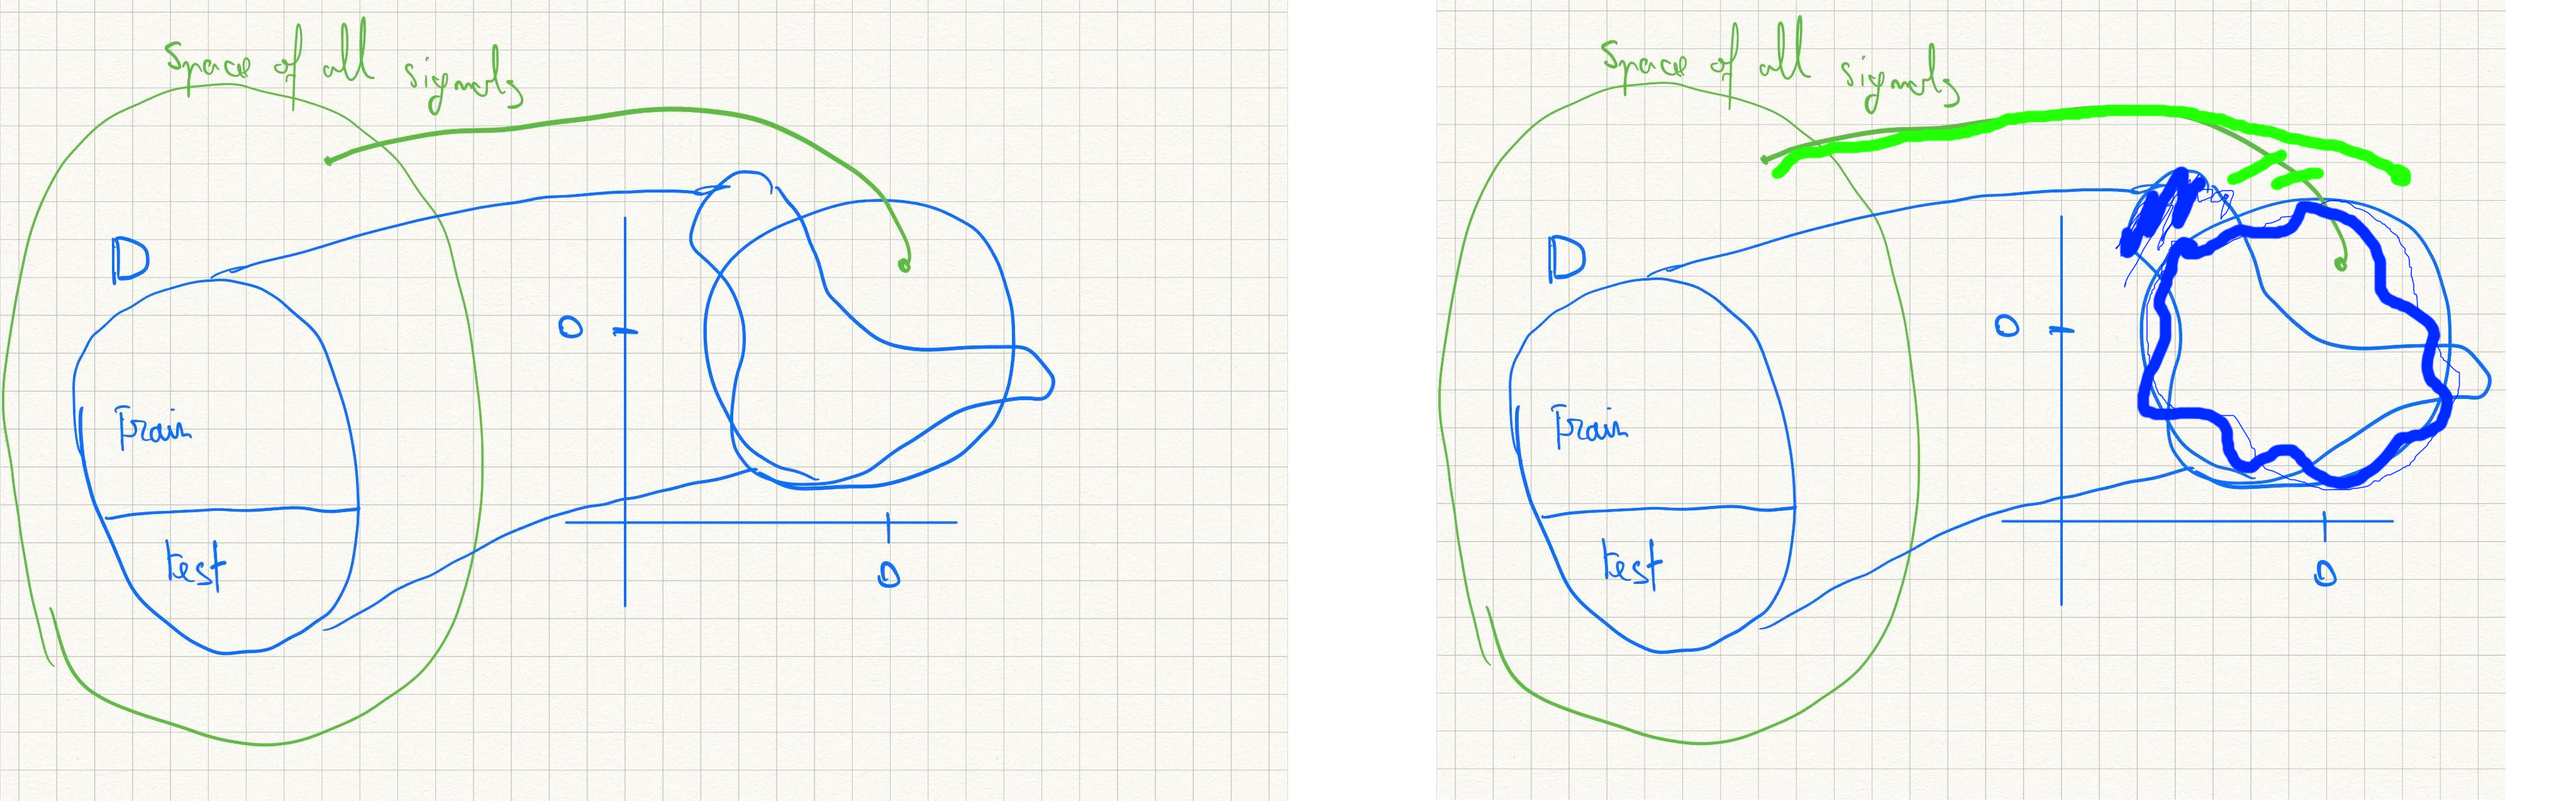 Space of all signals
D
0
Train
test
0
Space of all signals
D
0
Train
test
0